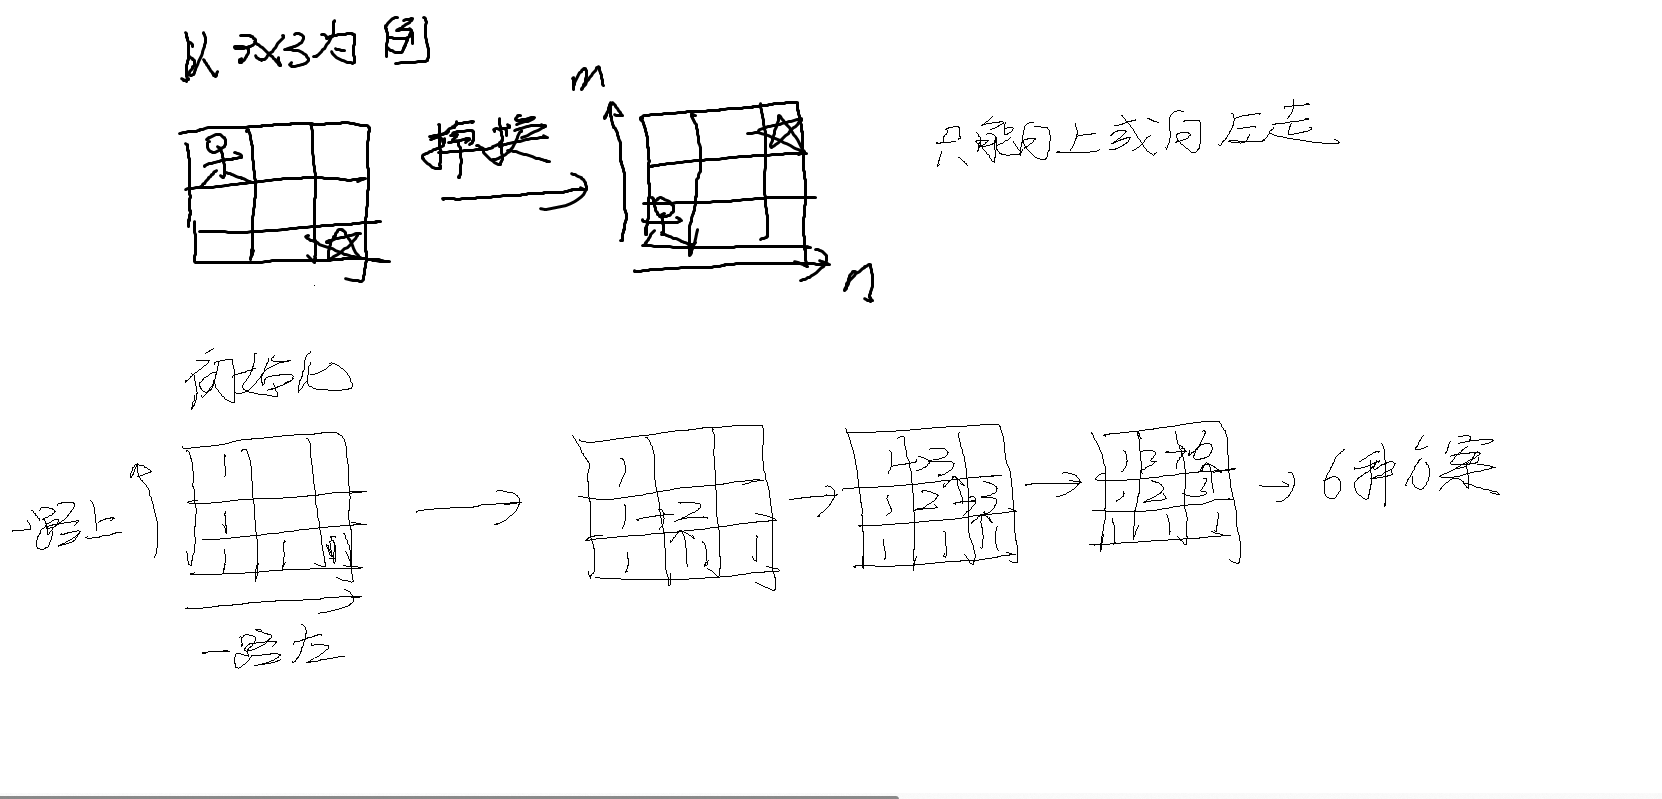 以3x3为例
转换
m
n
只能向上或向左走
初始化
一路上
一路左
1
1
1 1 1
1
1 2
1 1 1
1 3
1 2 3
1 1 1
1 3 6
1 2 3
1 1 1
6种方案